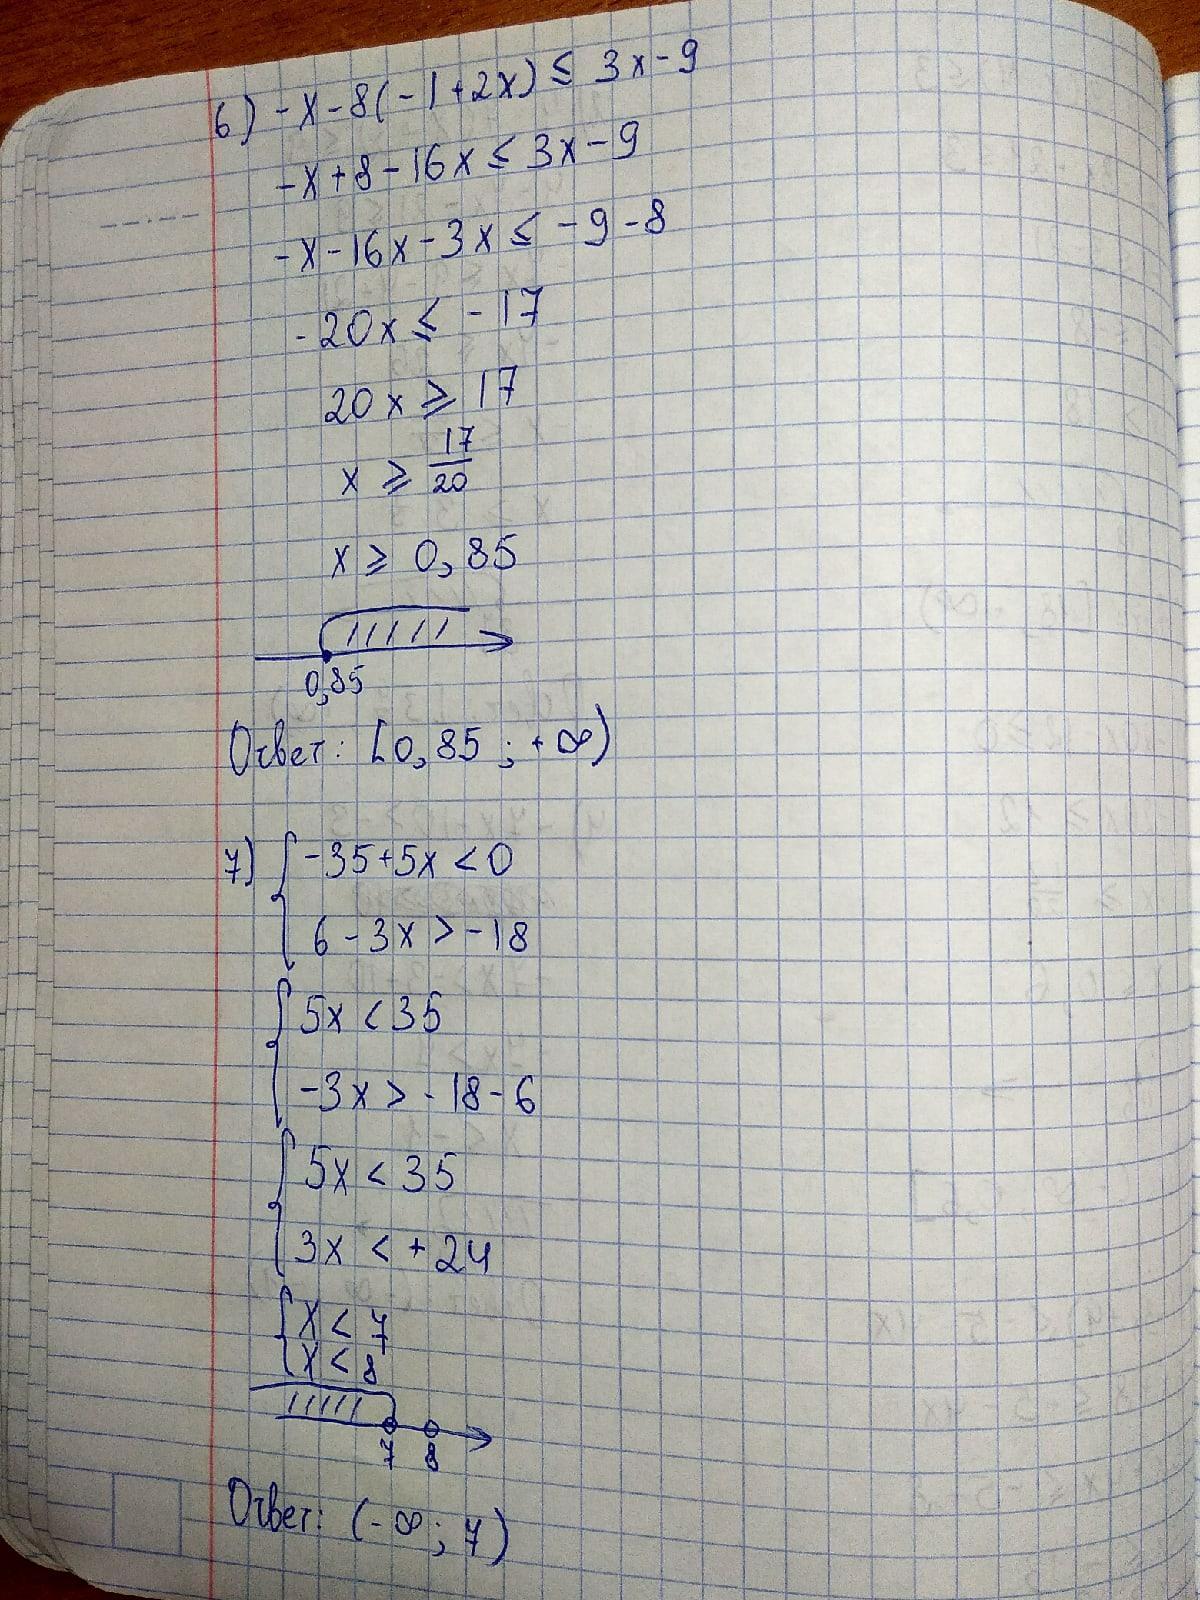 6) -x-8(-1+2x) ≤ 3x-9
-x+8-16x ≤ 3x-9
-x-16x-3x ≤ -9-8
-20x ≤ -17
20x ⩾ 17
x ⩾ 17/20
x ⩾ 0,85
0,85
Ответ: [0,85 ; +∞)
7) { -35+5x < 0
6-3x > -18
{ 5x < 35
-3x > -18-6
{ 5x < 35
3x < +24
{ x < 7
x < 8
7 8
Ответ: (-∞ ; 7)